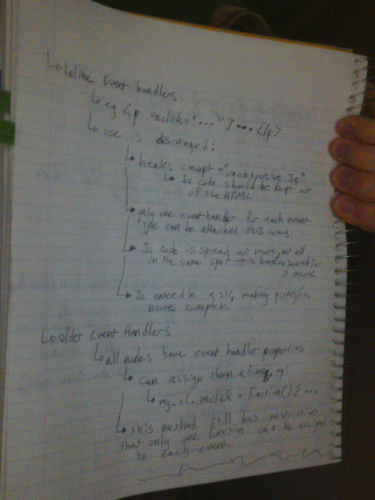 Inline Event handlers
eg <p onclick="..."> ... </p>
use is discouraged:
breaks concept of "unobtrusive JS"
Js code should be kept out
of the HTML
only one event-handler for each event
type can be attached this way
Js code is spread out more, not all
in the same spot
it more
Js entered in a str, making
more complex
Older Event Handlers
all nodes have event handler properties
can assign them a func, eg:
my_el.onclick = function() { ...
this method still has restriction
that only one function can be assigned
to each event